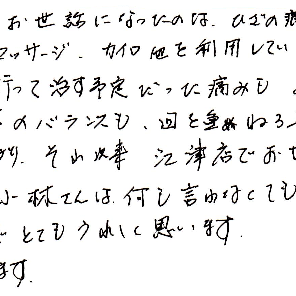 お世話になったのは、ひざの痛
マッサージ、カイロ他を利用してい
行って治す予定だった痛みも
のバランスも、回を重ねる
り、それ以来 江津店でお世
小林さんは何も言わなくても
とてもうれしく思います。
ます。